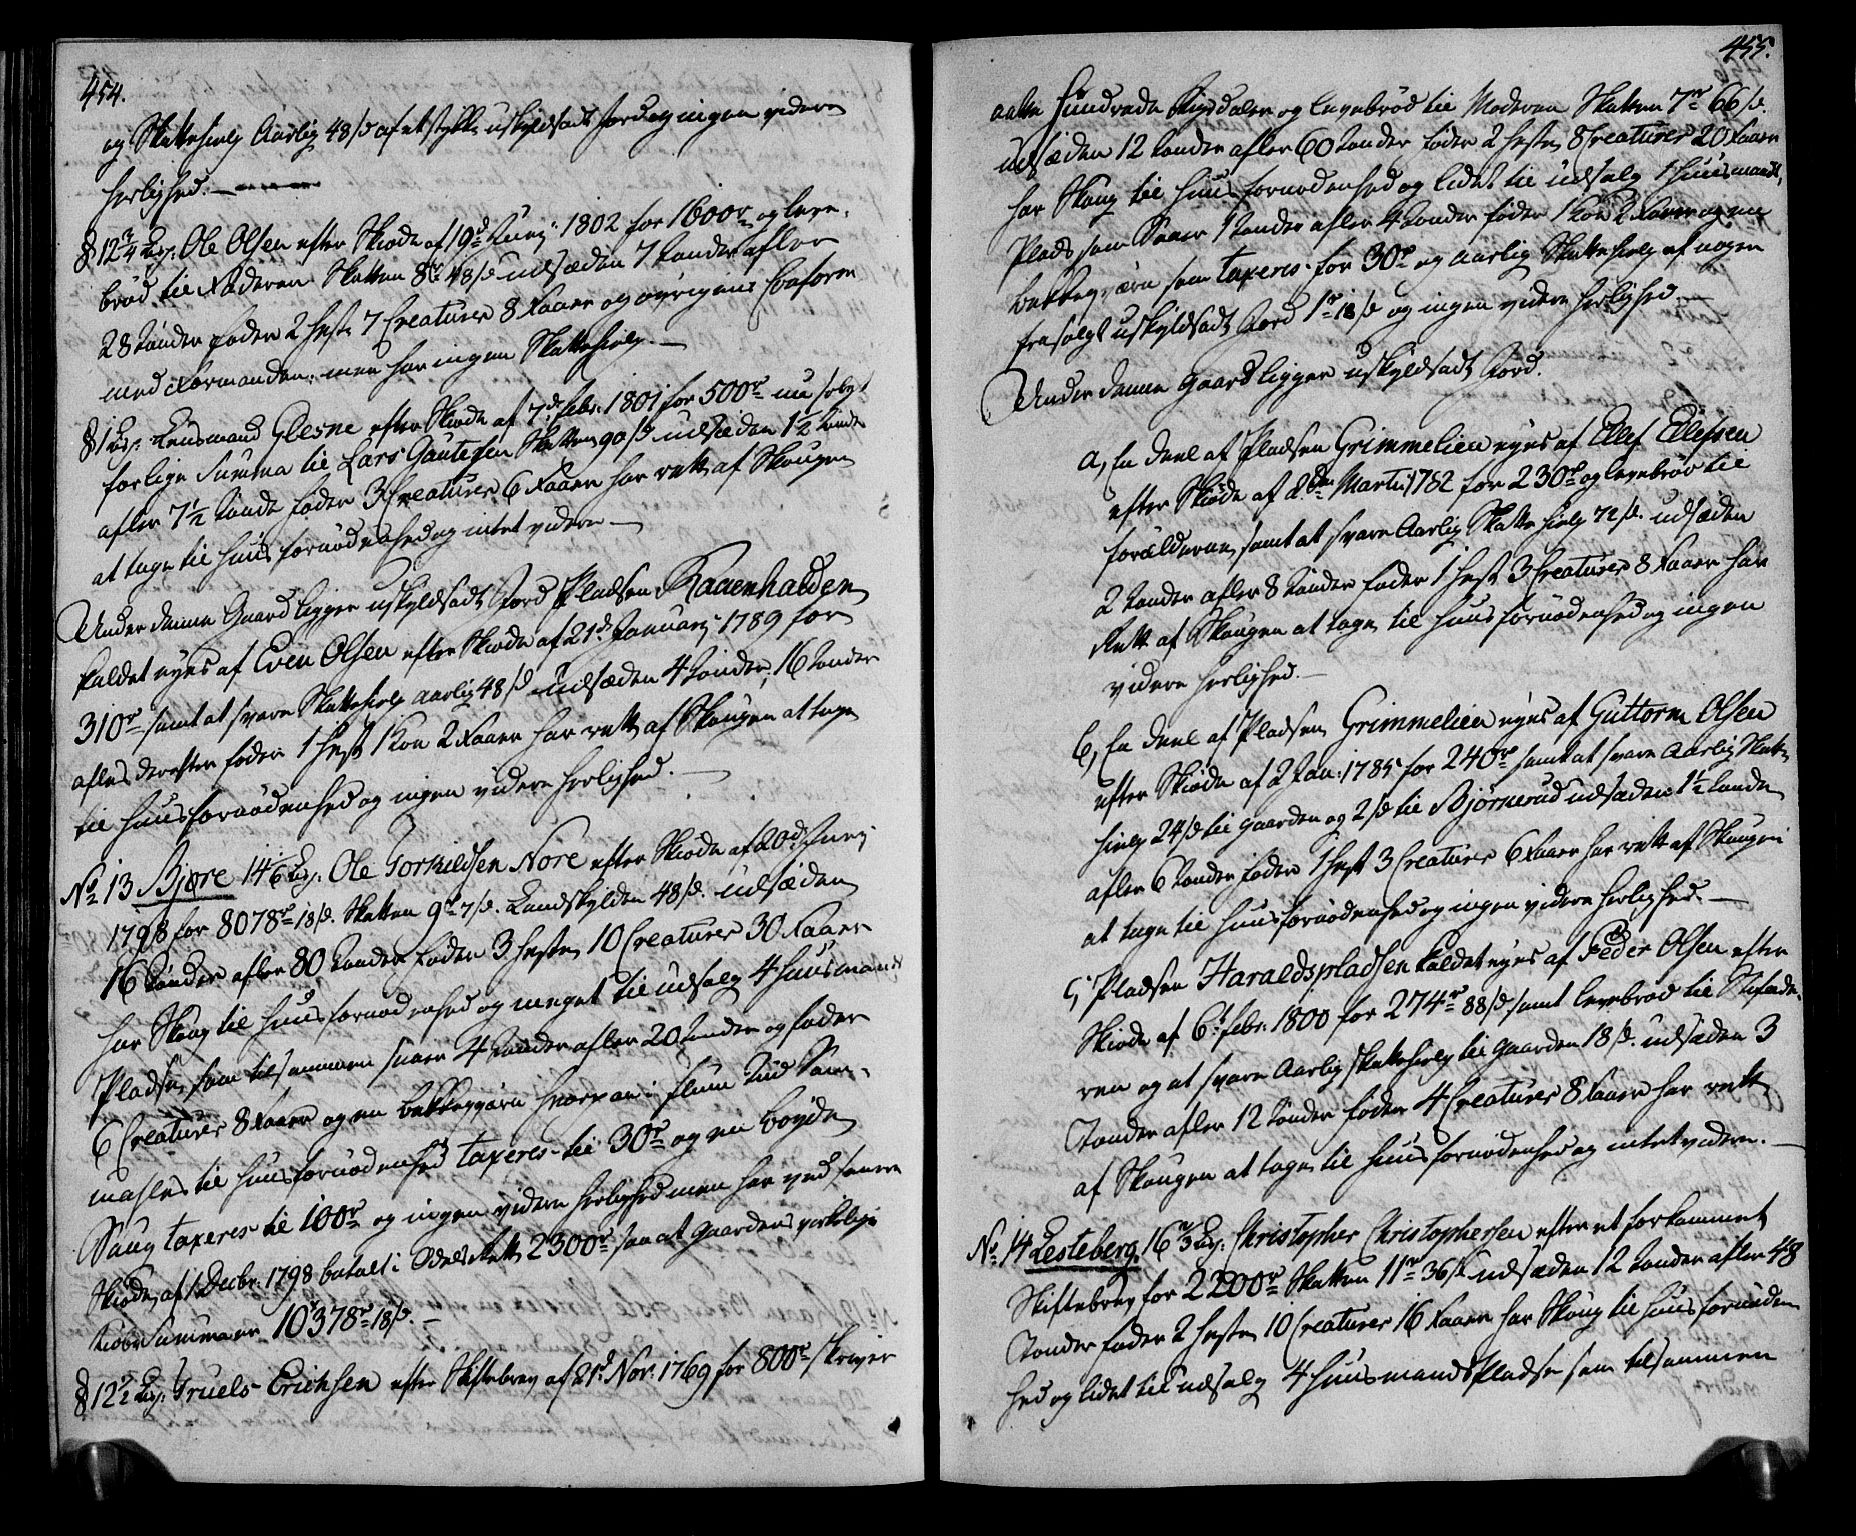 454.
og Skattehielp Aarlig 48 s. af et stykke uskyldsadt Jord og ingen videre
herlighed. —
§ 12 3/4 Lp: Ole Olsen efter Skiøde af 19d Junj: 1802 for 1600r og leve-
brød til Faderen Skatten 8r 48 s. udsæden 7 tønder afler
28 tønder foder 2 heste 7 Creaturer 8 Faar og øvrigens Conform
med Formanden: men har ingen Skattehielp. —
§ 1 Lp: Lensmand Glesne efter Skiøde af 7de Febr: 1801 for 500r nu solgt
for lige Summa til Lars Gautesen Skatten 90 s. udsæden 1½ tønde
afler 7½ tønde foder 3 Creaturer 6 Faar har rett af Skougen
at tage til huusfornødenhed og intet videre —
Under denne Gaard ligger uskyldsadt Jord Pladsen Raaenhalden
kaldet eyes af Even Olsen efter Skiøde af 21d Januarj: 1789 for
310r samt at svare Skattehielp aarlig 48 s. udsæden 4 tønder, 16 tønder
afles derefter foder 1 hest 1 Koe 2 Faar har rett af Skougen at tage
til huusfornødenhed og ingen videre herlighed. —
No 13 Bjøre 14 1/6 Lp: Ole Torkildsen Nore efter Skiøde af 20d Junj
1798 for 8078r 18 s. Skatten 9r 7 s. Landskylden 48 s. udsæden
16 tønder afler 80 tønder foder 3 heste 10 Creaturer 30 Faar
har Skoug til huusfornødenhed og meget til udsalg 4 huusmands
Pladse som tilsammen saaer 4 tønder afler 20 tønder og foder
6 Creaturer 8 Faar og en bekkeqværn hvorpaa i flom tid kan
mahles til huusfornødenhed taxeres til 30r og en bøyde
Saug taxeres til 100r og ingen videre herlighed men har ved senere
Skiøde af 1 Decbr: 1798 betalt i Odels Rett 2300r saa at Gaardens virkelige
Kiøbe Summa er 10378r 18 s. —
§ 12½ Lp: Truels Erichsen efter Skiftebrev af 21d Nov: 1769 for 800r skriver
455.
aatte Hundrede Rigsdaler og levebrød til Moderen Skatten 7r 66 s.
udsæden 12 tønder afler 60 tønder foder 2 heste 8 Creaturer 20 Faar
har Skoug til huusfornødenhed og lidet til udsalg 1 huusmands
Plads som saaer 1 tønder afler 4 tønder foder 1 Koe 2 Faar og en
bekkeqværn som taxeres for 30r og aarlig Skattehielp af nogen
frasolgt uskyldsadt Jord 1r 18 s. og ingen videre herlighed —
Under denne Gaard ligger uskyldsadt Jord.
a, En deel af Pladsen Grimmelien eyes af Ellef Ellefsen
efter Skiøde af 2den Martij 1782 for 230r og levebrød til
forældrene, samt at svare Aarlig Skattehielp 72 s. udsæden
2 tønder afler 8 tønder foder 1 hest 3 Creaturer 8 Faar har
Rett af Skougen at tage til huusfornødenhed og ingen
videre herlighed. —
b, En deel af Pladsen Grimmelien eyes af Guttorm Olsen
efter Skiøde af 2 Jan: 1785 for 240r samt at svare Aarlig Skatte-
hielp 24 s. til gaarden og 2 s. til Bjørnerud udsæden 1½ tønde
afler 6 tønder foder 1 hest 3 Creaturer 6 Faar har rett af Skougen
at tage til huusfornødenhed og ingen videre herlighed. —
c, Pladsen Haraldspladsen kaldet eyes af Peder Olsen efter
Skiøde af 6t Febr: 1800 for 274r 88 s. samt levebrød til Stifade-
ren og at svare Aarlig skattehielp til gaarden 18 s. udsæden 3
Tønder afler 12 tønder foder 4 Creaturer 8 Faar har rett
af Skougen at tage til huusfornødenhed og intet videre. —
No 14 Lesteberg. 16 2/3 Lp: Christopher Christophersen efter et forkommet
Skiftebrev for 2200r Skatten 11r 36 s. udsæden 12 tønder afler 48
Tønder foder 2 heste 10 Creaturer 16 Faar har Skoug til huusfornøden-
hed og lidet til udsalg 4 huusmandsPladse som tilsammen